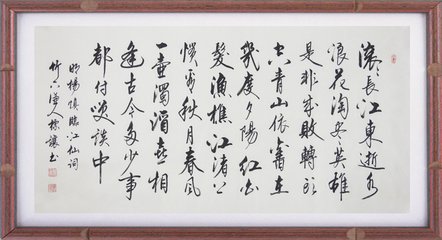 滚滚長江東逝水
浪花淘尽英雄
是非成敗轉头
空青山依舊在
幾度夕陽紅白
髮漁樵江渚上
慣看秋月春風
一壺濁酒喜相
逢古今多少事
都付笑談中
明楊慎臨江仙詞
竹人書